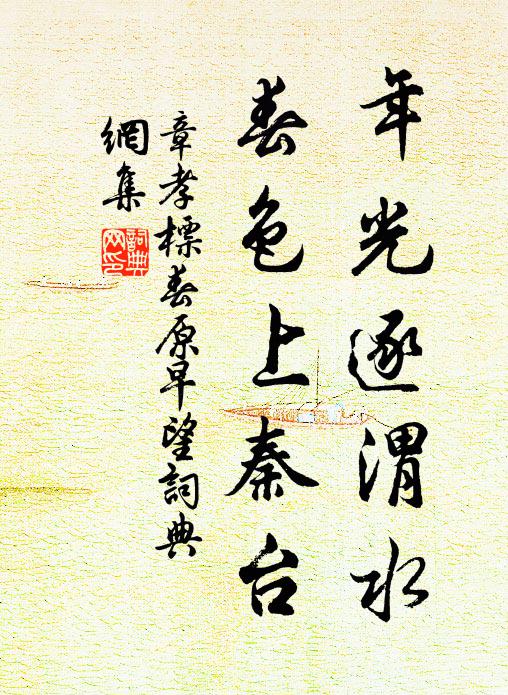 年光逐渭水
春色上秦台
章孝標春原早望詞典
網集
詞典
网印